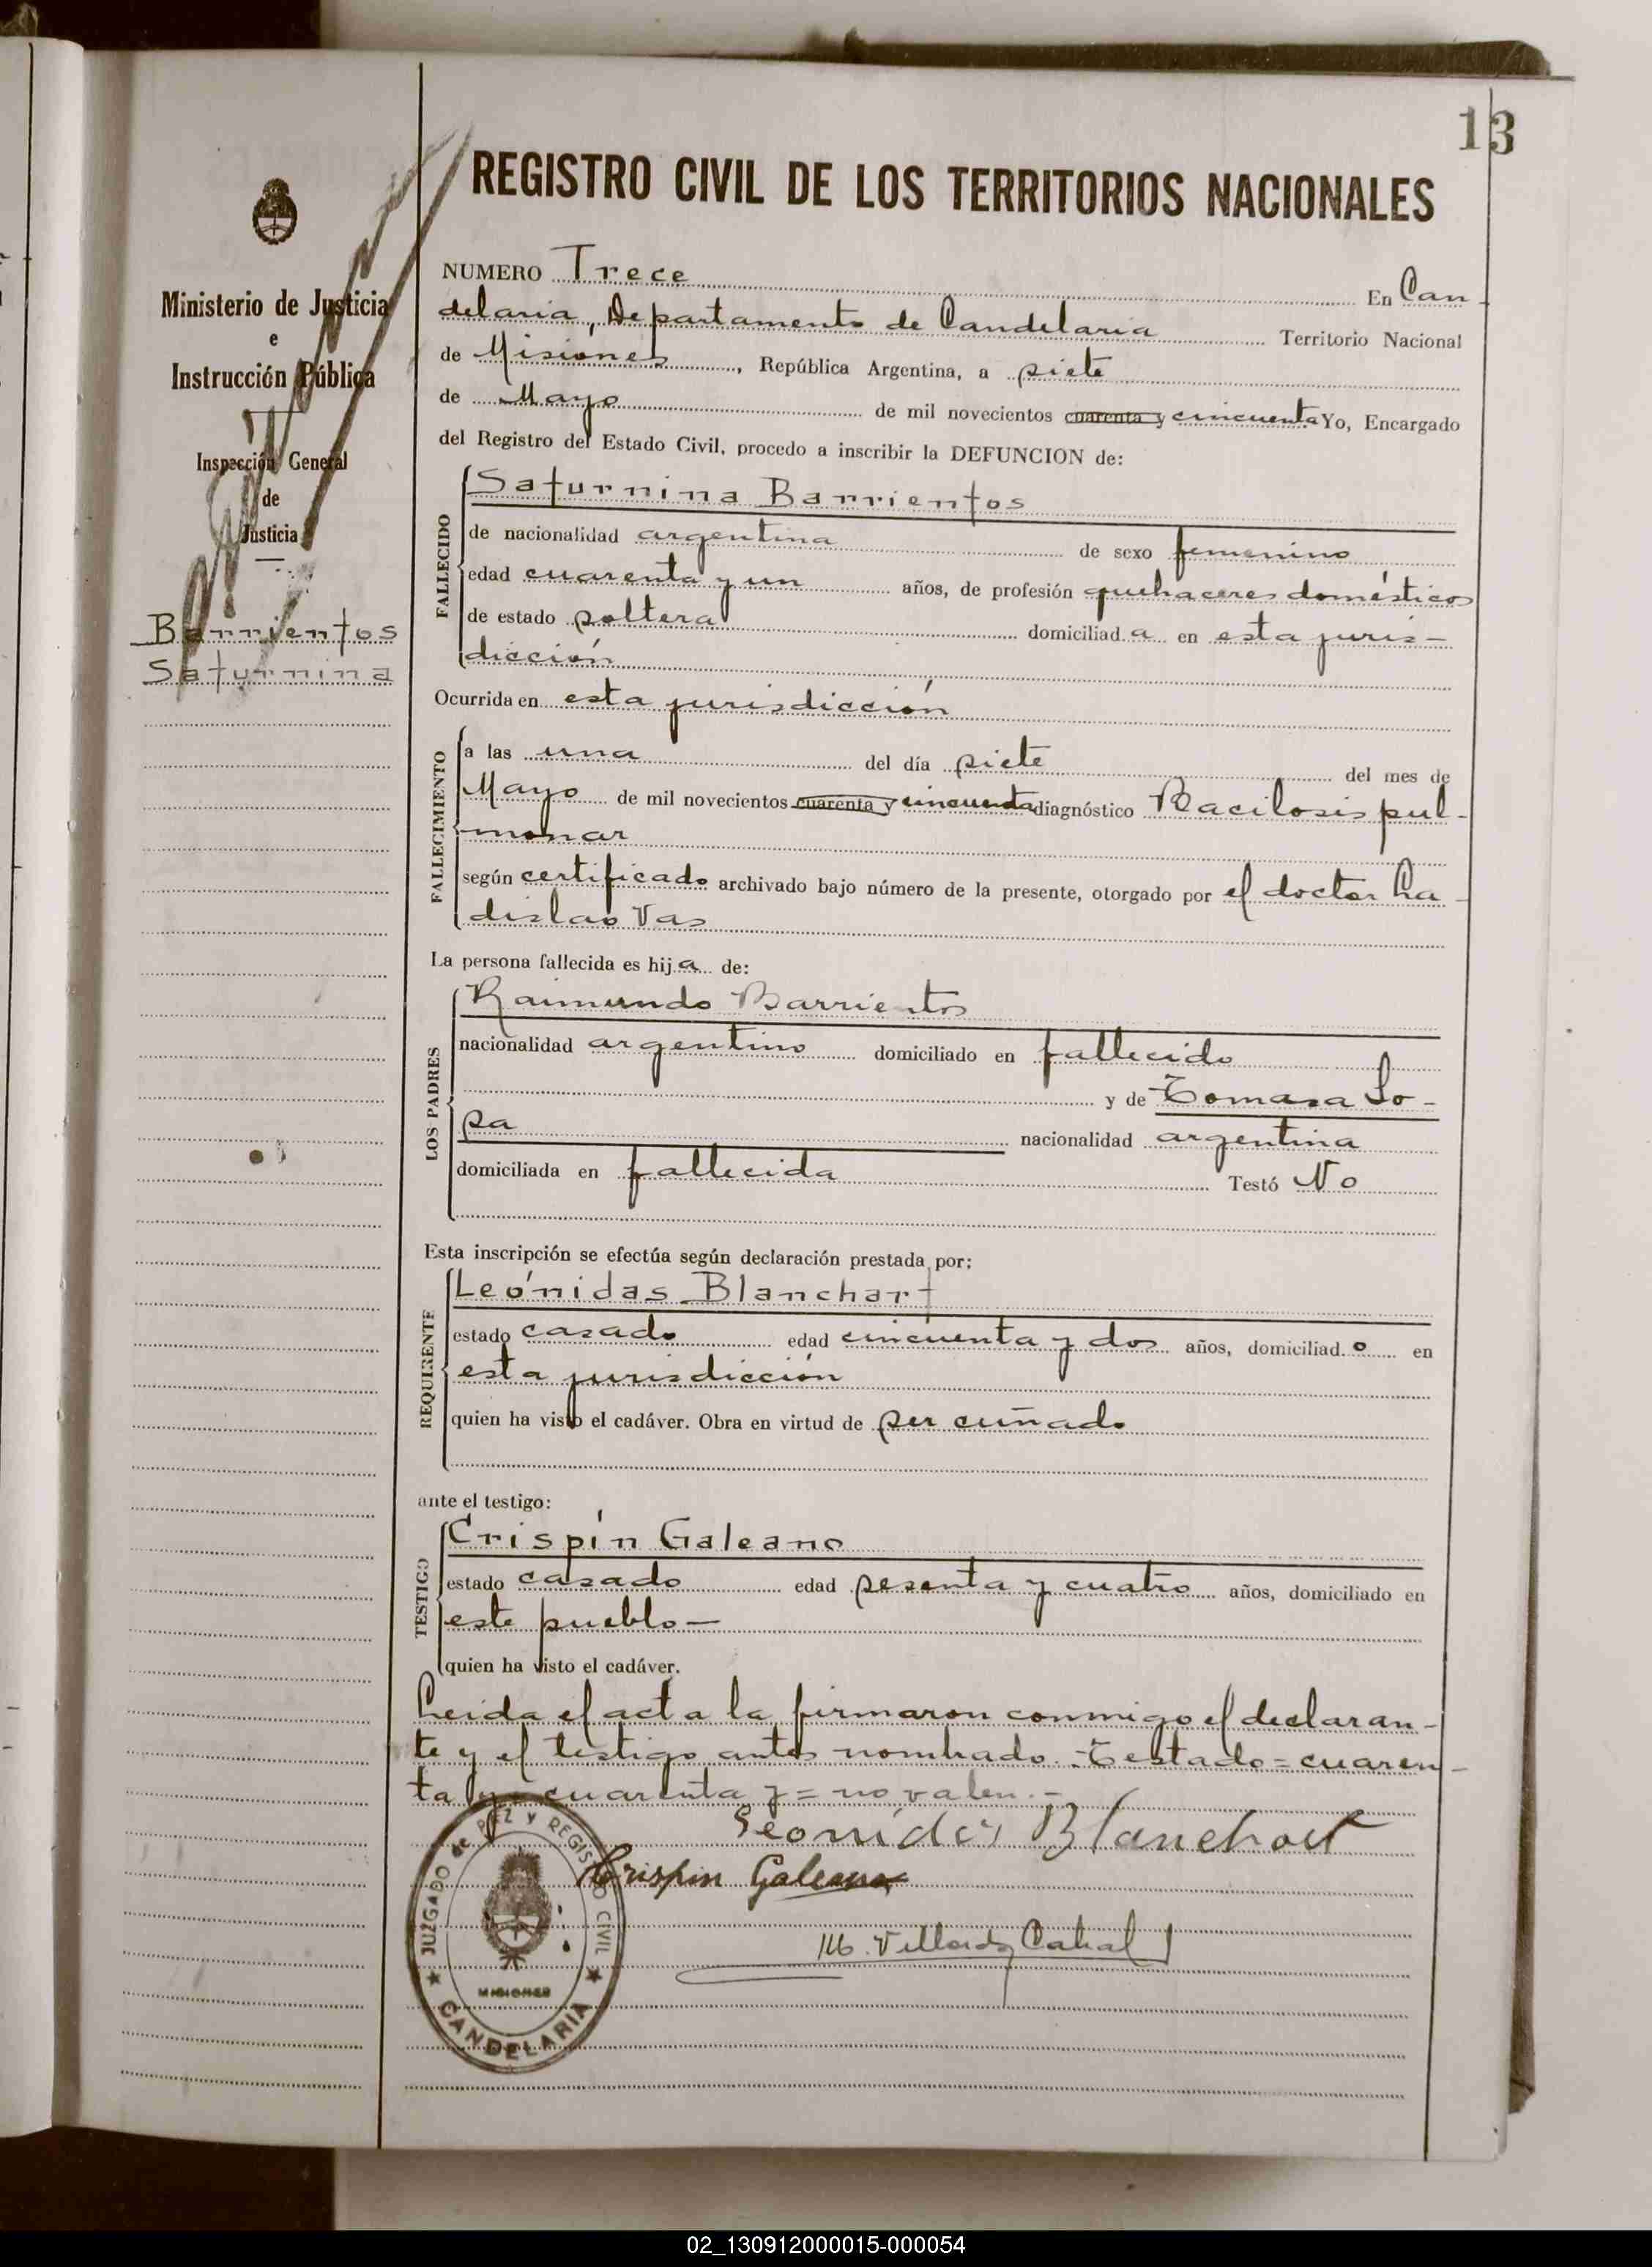 13
REGISTRO CIVIL DE LOS TERRITORIOS NACIONALES
Ministerio de Justicia
e
Instrucción Pública
Inspección General
de
Justicia
Barrientos
Saturnina
NUMERO Trece En Can-
delaria, Departamento de Candelaria Territorio Nacional
de Misiones, República Argentina, a siete
de Mayo de mil novecientos cuarenta y cincuenta Yo, Encargado
del Registro del Estado Civil, procedo a inscribir la DEFUNCION de:
FALLECIDO
Saturnina Barrientos
de nacionalidad argentina de sexo femenino
edad cuarenta y un años, de profesión quehaceres domésticos
de estado soltera domiciliada en esta juris-
dicción
Ocurrida en esta jurisdicción
FALLECIMIENTO
a las una del día siete del mes de
Mayo de mil novecientos cuarenta y cincuenta diagnóstico Bacilosis pul-
monar
según certificado archivado bajo número de la presente, otorgado por el doctor La-
dislao Vas
La persona fallecida es hija de:
LOS PADRES
Raimundo Barrientos
nacionalidad argentino domiciliado en fallecido
y de Tomasa So-
sa nacionalidad argentina
domiciliada en fallecida Testó No
Esta inscripción se efectúa según declaración prestada por:
REQUIRENTE
Leónidas Blanchart
estado casado edad cincuenta y dos años, domiciliado en
esta jurisdicción
quien ha visto el cadáver. Obra en virtud de ser cuñado
ante el testigo:
TESTIGO
Crispín Galeano
estado casado edad sesenta y cuatro años, domiciliado en
este pueblo-
quien ha visto el cadáver.
Leida el acta la firmaron conmigo el declaran-
te y el testigo antes nombrado. Testado=cuaren-
ta y= cuarenta y= no valen.-
Leónidas Blanchart
Crispin Galeano
JUZGADO de PAZ y REGISTRO CIVIL
MISIONES
CANDELARIA
M. Cabral
02_130912000015-000054